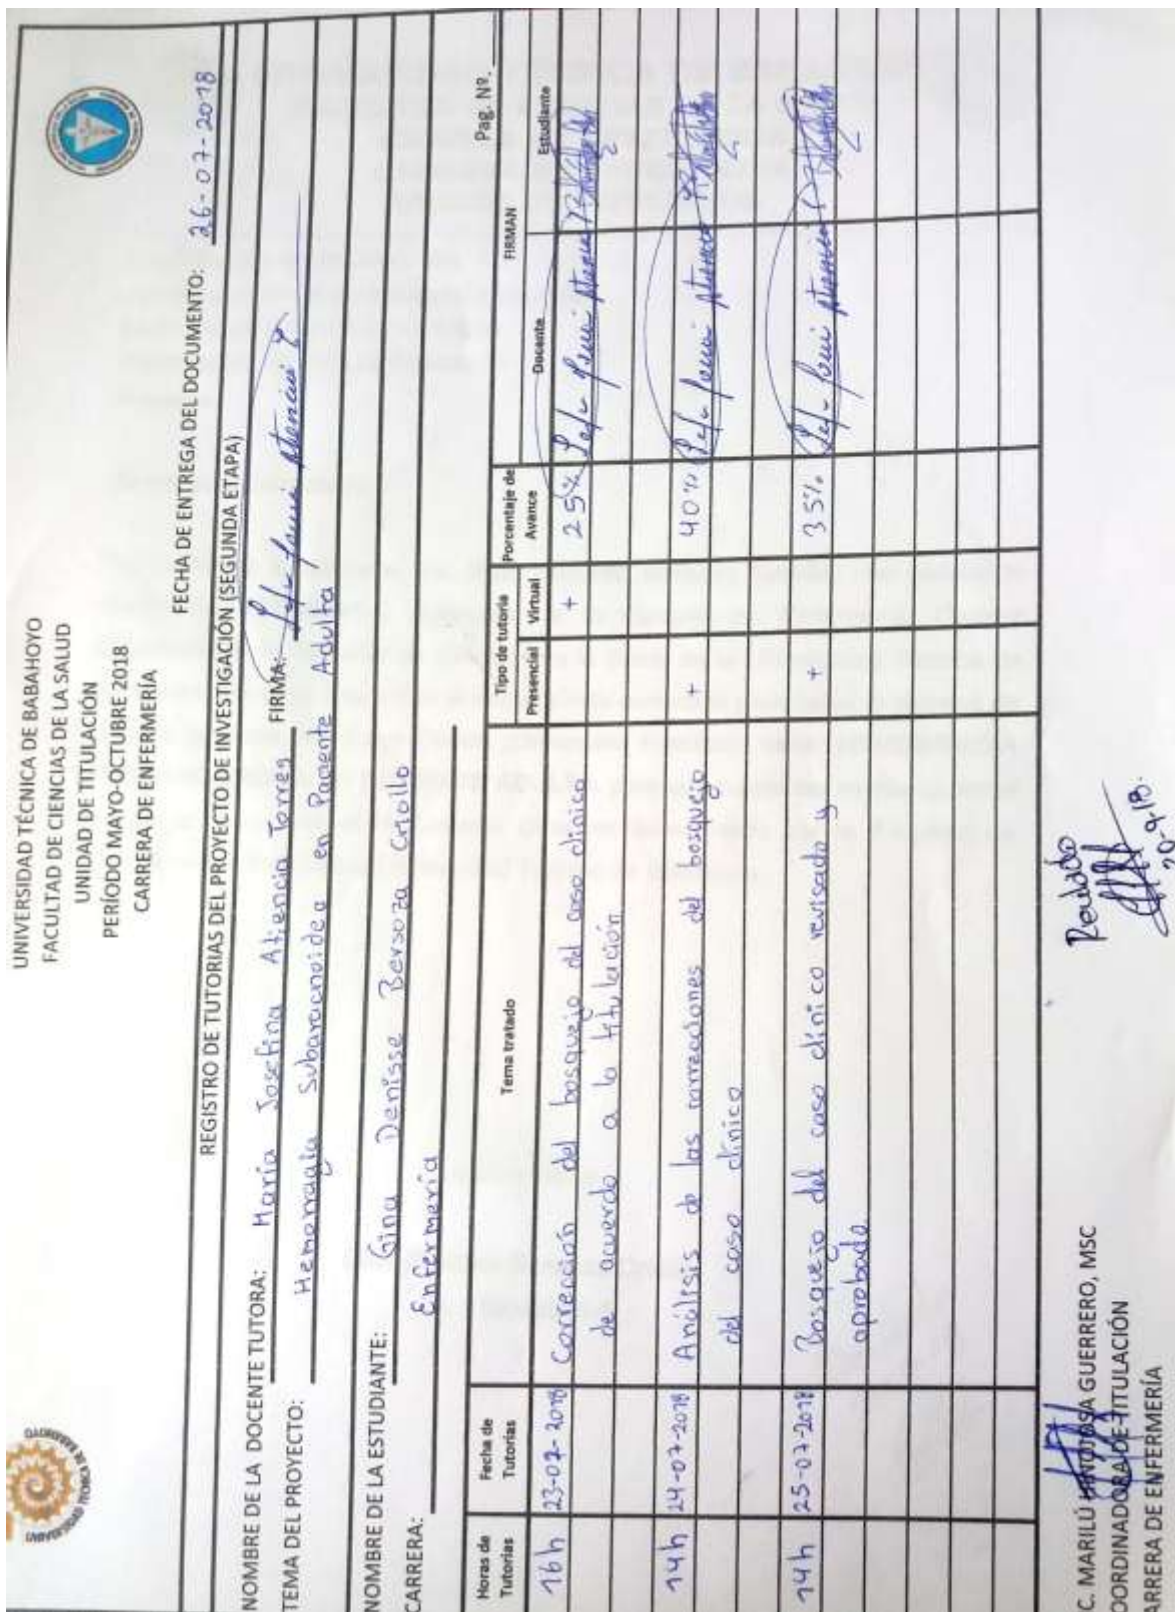 UNIVERSIDAD TÉCNICA DE BABAHOYO
FACULTAD DE CIENCIAS DE LA SALUD
UNIDAD DE TITULACIÓN
PERÍODO MAYO-OCTUBRE 2018
CARRERA DE ENFERMERÍA
FECHA DE ENTREGA DEL DOCUMENTO: 26-07-2018
REGISTRO DE TUTORIAS DEL PROYECTO DE INVESTIGACIÓN (SEGUNDA ETAPA)
NOMBRE DE LA DOCENTE TUTORA: María Josefina Atiencia Torres FIRMA:
TEMA DEL PROYECTO: Hemorragia Subaracnoidea en Paciente Adulta
NOMBRE DE LA ESTUDIANTE: Gina Denisse Bersoza Criollo
CARRERA: Enfermería
Pag. Nº.
Horas de Tutorias Fecha de Tutorias Tema tratado Tipo de tutoria Porcentaje de Avance FIRMAN
Presencial Virtual Docente Estudiante
16h 23-07-2018 Corrección del bosquejo del caso clínico + 25%
de acuerdo a la titulación
14h 24-07-2018 Análisis de las correcciones del bosquejo + 40%
del caso clínico
14h 25-07-2018 Bosquejo del caso clínico revisado y + 35%
aprobado
C. MARILÚ HINOJOSA GUERRERO, MSC
OORDINADORA DE TITULACIÓN
ARRERA DE ENFERMERÍA
20-9-18.